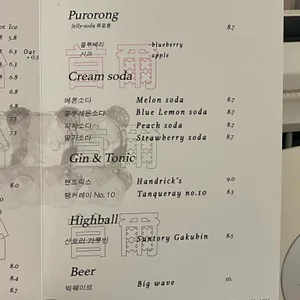 ot Ice
Purorong
Jelly-soda 푸로롱 8.7
5.8
6.3
Oat +0.5
블루베리 -blueberry
사과 apple
Cream soda
6.3
7.3
메론소다 Melon soda 8.7
블루레몬소다 Blue Lemon soda 8.7
피치소다 Peach soda 8.7
딸기소다 Strawberry soda 8.7
Gin & Tonic
8.0
핸드릭스 Handrick's 9.0
탱커레이 No.10 Tanqueray no.10 8.5
Highball
산토리 가쿠빈 Suntory Gakubin 8.5
Beer
8.0
8.4
빅웨이브 Big wave 10.
8.7